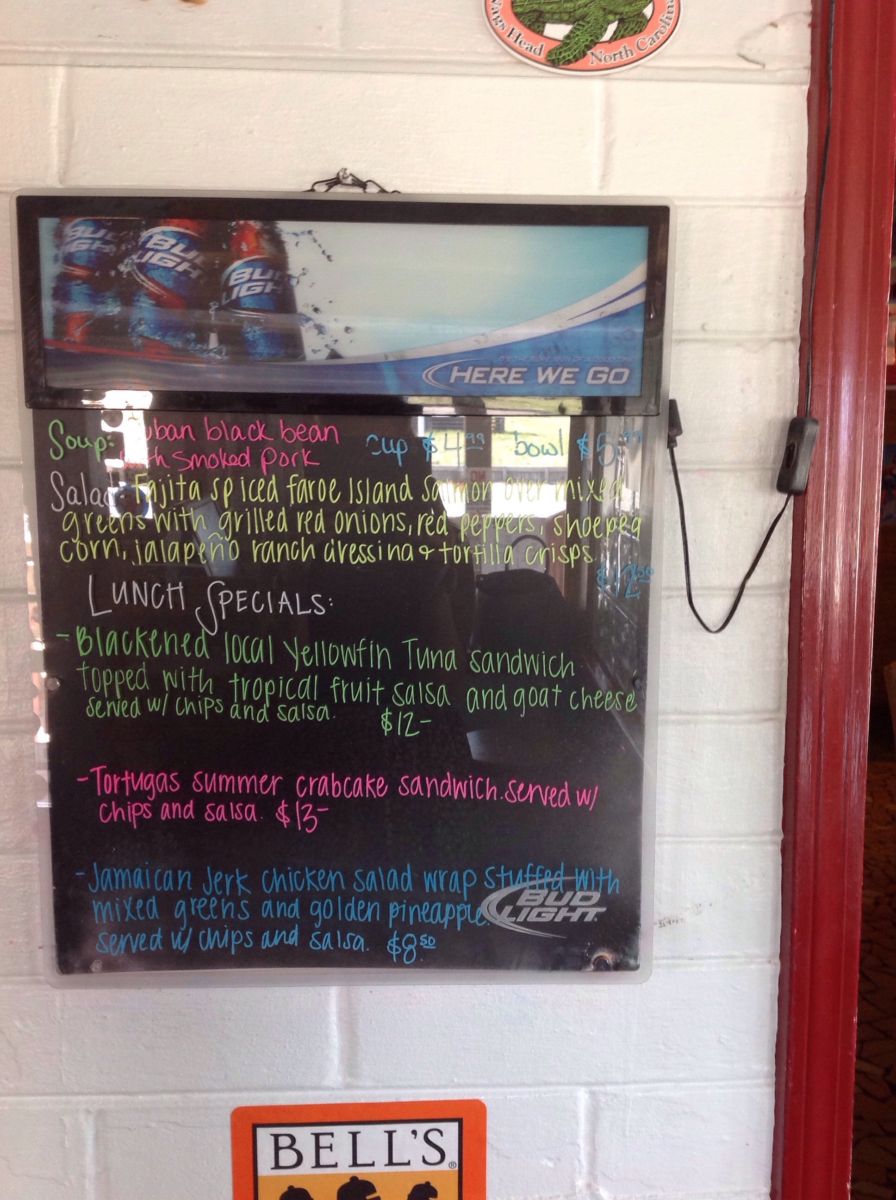 Nags Head North Carolina
BUD LIGHT
BUD LIGHT
BUD LIGHT
HERE WE GO
Soup: Cuban black bean cup $4.99 bowl $5.99
with smoked pork
Salad: Fajita spiced faroe Island Salmon over mixed
greens with grilled red onions, red peppers, shoepeg
corn, jalapeño ranch dressing & tortilla crisps
$12.50
LUNCH SPECIALS:
- Blackened local Yellowfin Tuna sandwich
topped with tropical fruit salsa and goat cheese
served w/ chips and salsa. $12-
- Tortugas summer crabcake sandwich. served w/
chips and salsa. $13-
- Jamaican Jerk chicken salad wrap stuffed with
mixed greens and golden pineapple.
served w/ chips and salsa. $8.50
BUD LIGHT
BELL'S